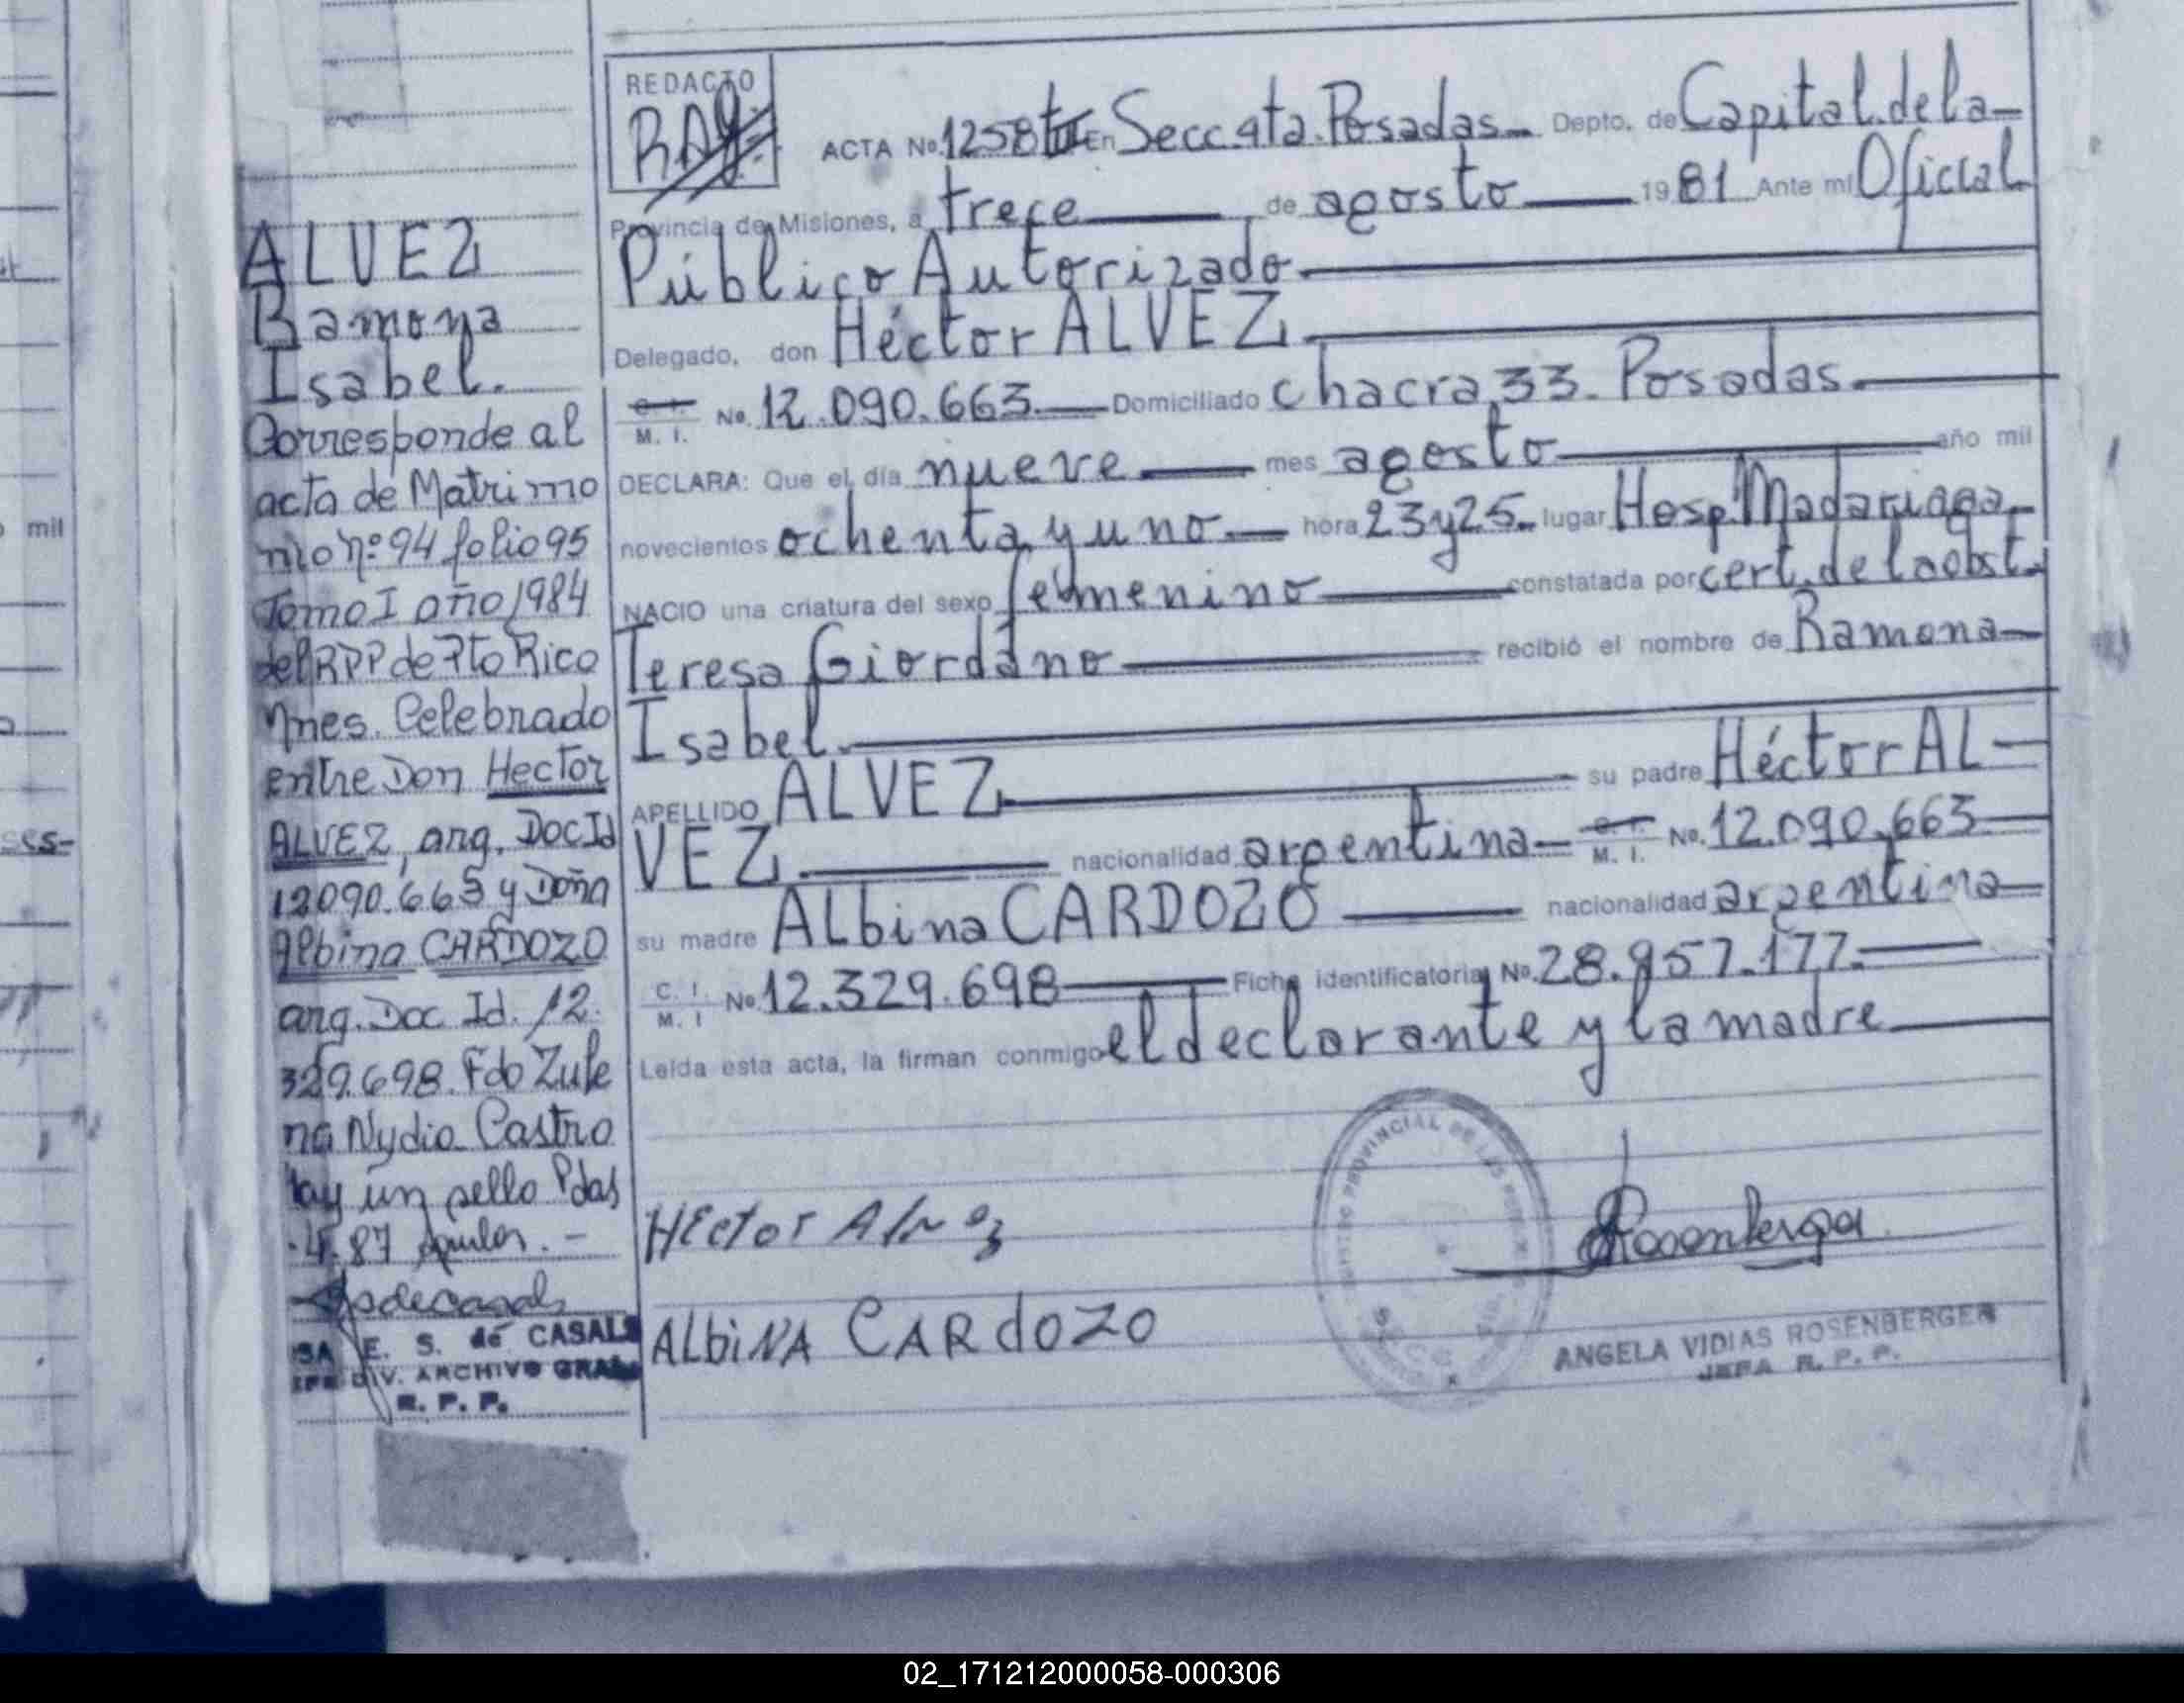 REDACTO
ACTA No. 1258 En Secc. 4ta. Posadas Depto. de Capital. de la
Provincia de Misiones, a trece de agosto 1981 Ante mí Oficial
Público Autorizado
Delegado, don Héctor ALVEZ
C. I. M. I. No. 12.090.663 Domiciliado chacra 33. Posadas.
DECLARA: Que el día nueve mes agosto año mil
novecientos ochenta y uno. hora 23 y 25. lugar Hosp. Madariaga.
NACIO una criatura del sexo femenino constatada por cert. de la obst.
Teresa Giordano recibió el nombre de Ramona
Isabel.
APELLIDO ALVEZ su padre Héctor AL
VEZ. nacionalidad argentina C. I. M. I. No. 12.090.663
su madre ALbina CARDOZO nacionalidad argentina
C. I. M. I No. 12.329.698 Ficha identificatoria No. 28.957.177.
Leída esta acta, la firman conmigo el declarante y la madre
HEctor Alvez
ALbiNA CARdOZO
Rosenberger
ANGELA VIDIAS ROSENBERGER
JEFA R. P. P.
ALVEZ
Ramona
Isabel.
Corresponde al
acta de Matrimo
nio nº 94 folio 95
Tomo I año 1984
del RPP de Pto Rico
Mnes. Celebrado
entre Don Hector
ALVEZ, arg. Doc Id
12090.663 y Doña
Albina CARDOZO
arg. Doc Id. 12.
329.698. Fdo Zule
ma Nydia Castro
hay un sello Pdas
.4.87
E. S. de CASALS
DIV. ARCHIVO GRAL
R. P. P.
mil
02_171212000058-000306